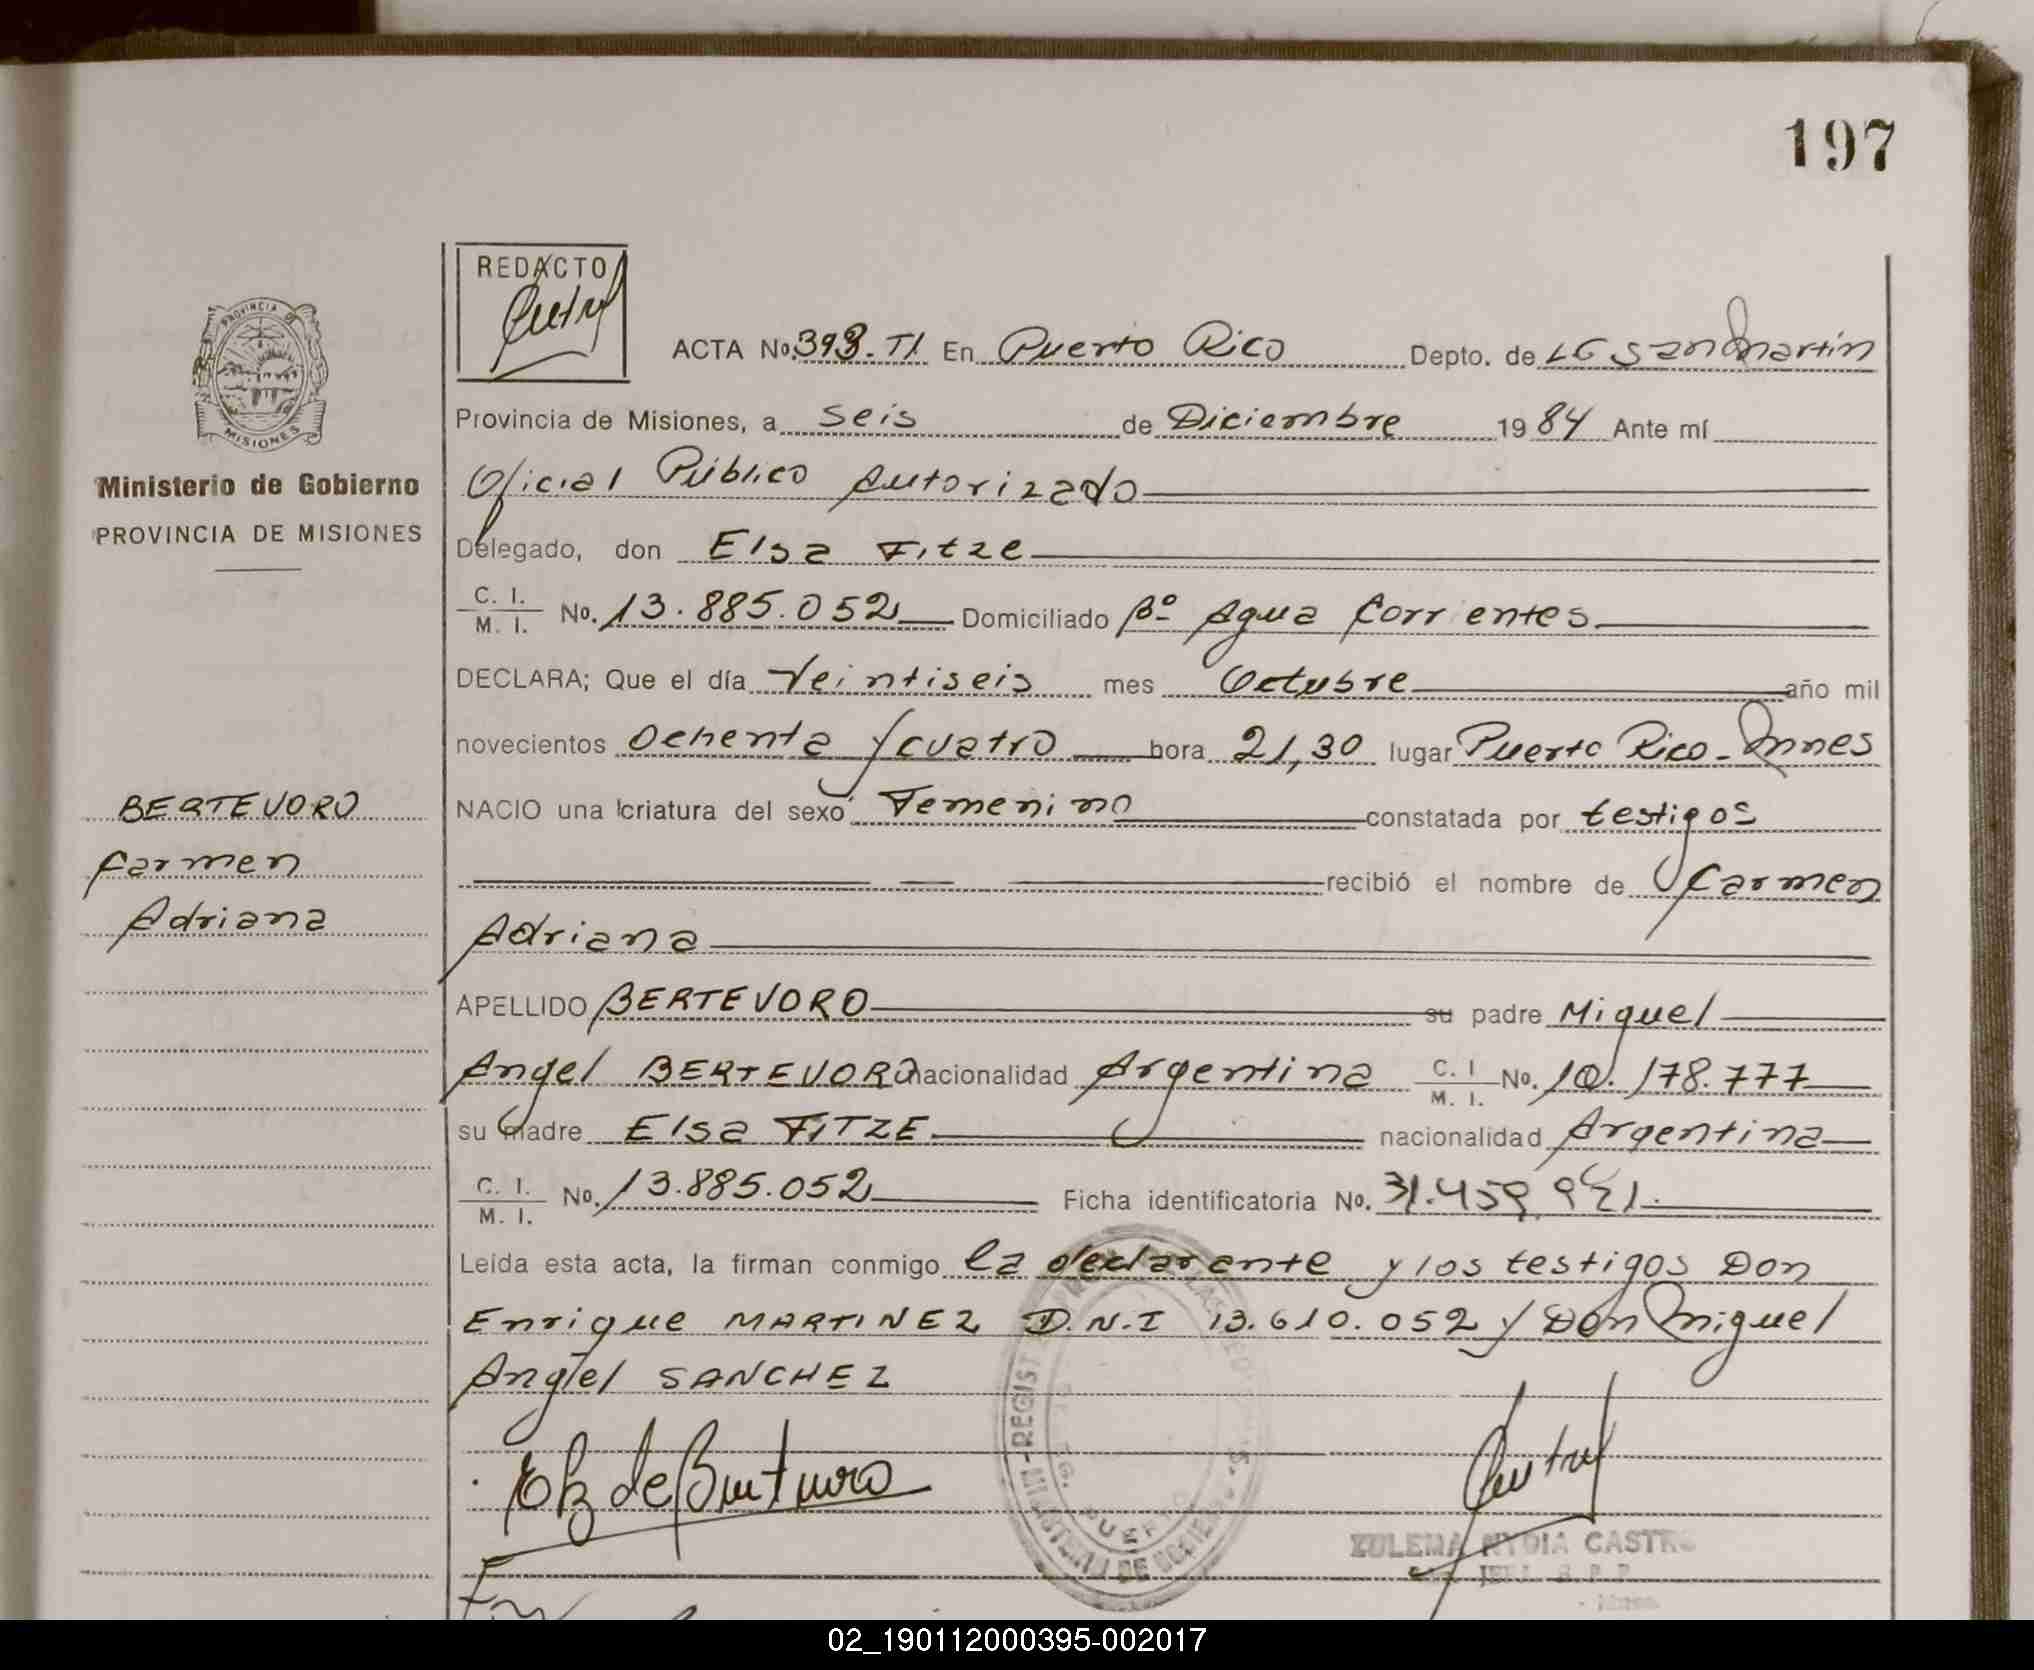 197
REDACTO
PROVINCIA DE
MISIONES
Ministerio de Gobierno
PROVINCIA DE MISIONES
ACTA No. 393. TI. En Puerto Rico Depto. de LG San Martin
Provincia de Misiones, a Seis de Diciembre 1984 Ante mí
Oficial Público Autorizado
Delegado, don Elsa Fitze
C. I. M. I. No. 13.885.052 Domiciliado Bº Agua Corrientes
DECLARA; Que el día Veintiseis mes Octubre año mil
novecientos Ochenta y cuatro hora 21,30 lugar Puerto Rico - Mnes
NACIO una criatura del sexo Femenino constatada por testigos
recibió el nombre de Carmen
Adriana
BERTEVORO
Carmen
Adriana
APELLIDO BERTEVORO su padre Miguel
Angel BERTEVORO nacionalidad Argentina C. I M. I. No. 10.178.777
su madre Elsa FITZE nacionalidad Argentina
C. I. M. I. No. 13.885.052 Ficha identificatoria No. 31.459.941
Leída esta acta, la firman conmigo la declarante y los testigos Don
Enrique MARTINEZ D.N.I 13.610.052 y Don Miguel
Angel SANCHEZ
ZULEMA NYDIA CASTRO
02_190112000395-002017